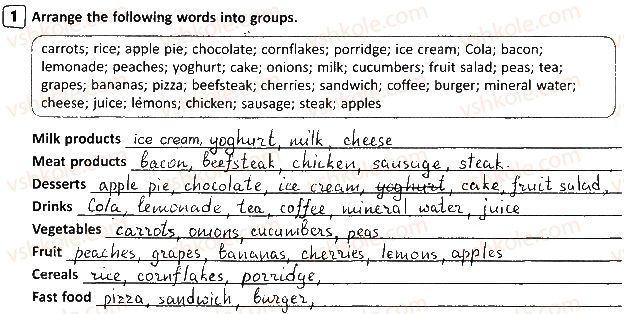 1 Arrange the following words into groups.
carrots; rice; apple pie; chocolate; cornflakes; porridge; ice cream; Cola; bacon;
lemonade; peaches; yoghurt; cake; onions; milk; cucumbers; fruit salad; peas; tea;
grapes; bananas; pizza; beefsteak; cherries; sandwich; coffee; burger; mineral water;
cheese; juice; lémons; chicken; sausage; steak; apples
Milk products ice cream, yoghurt, milk, cheese
Meat products bacon, beefsteak, chicken, sausage, steak.
Desserts apple pie, chocolate, ice cream, yoghurt, cake, fruit salad,
Drinks Cola, lemonade, tea, coffee, mineral water, juice
Vegetables carrots, onions, cucumbers, peas
Fruit peaches, grapes, bananas, cherries, lemons, apples
Cereals rice, cornflakes, porridge,
Fast food pizza, sandwich, burger,